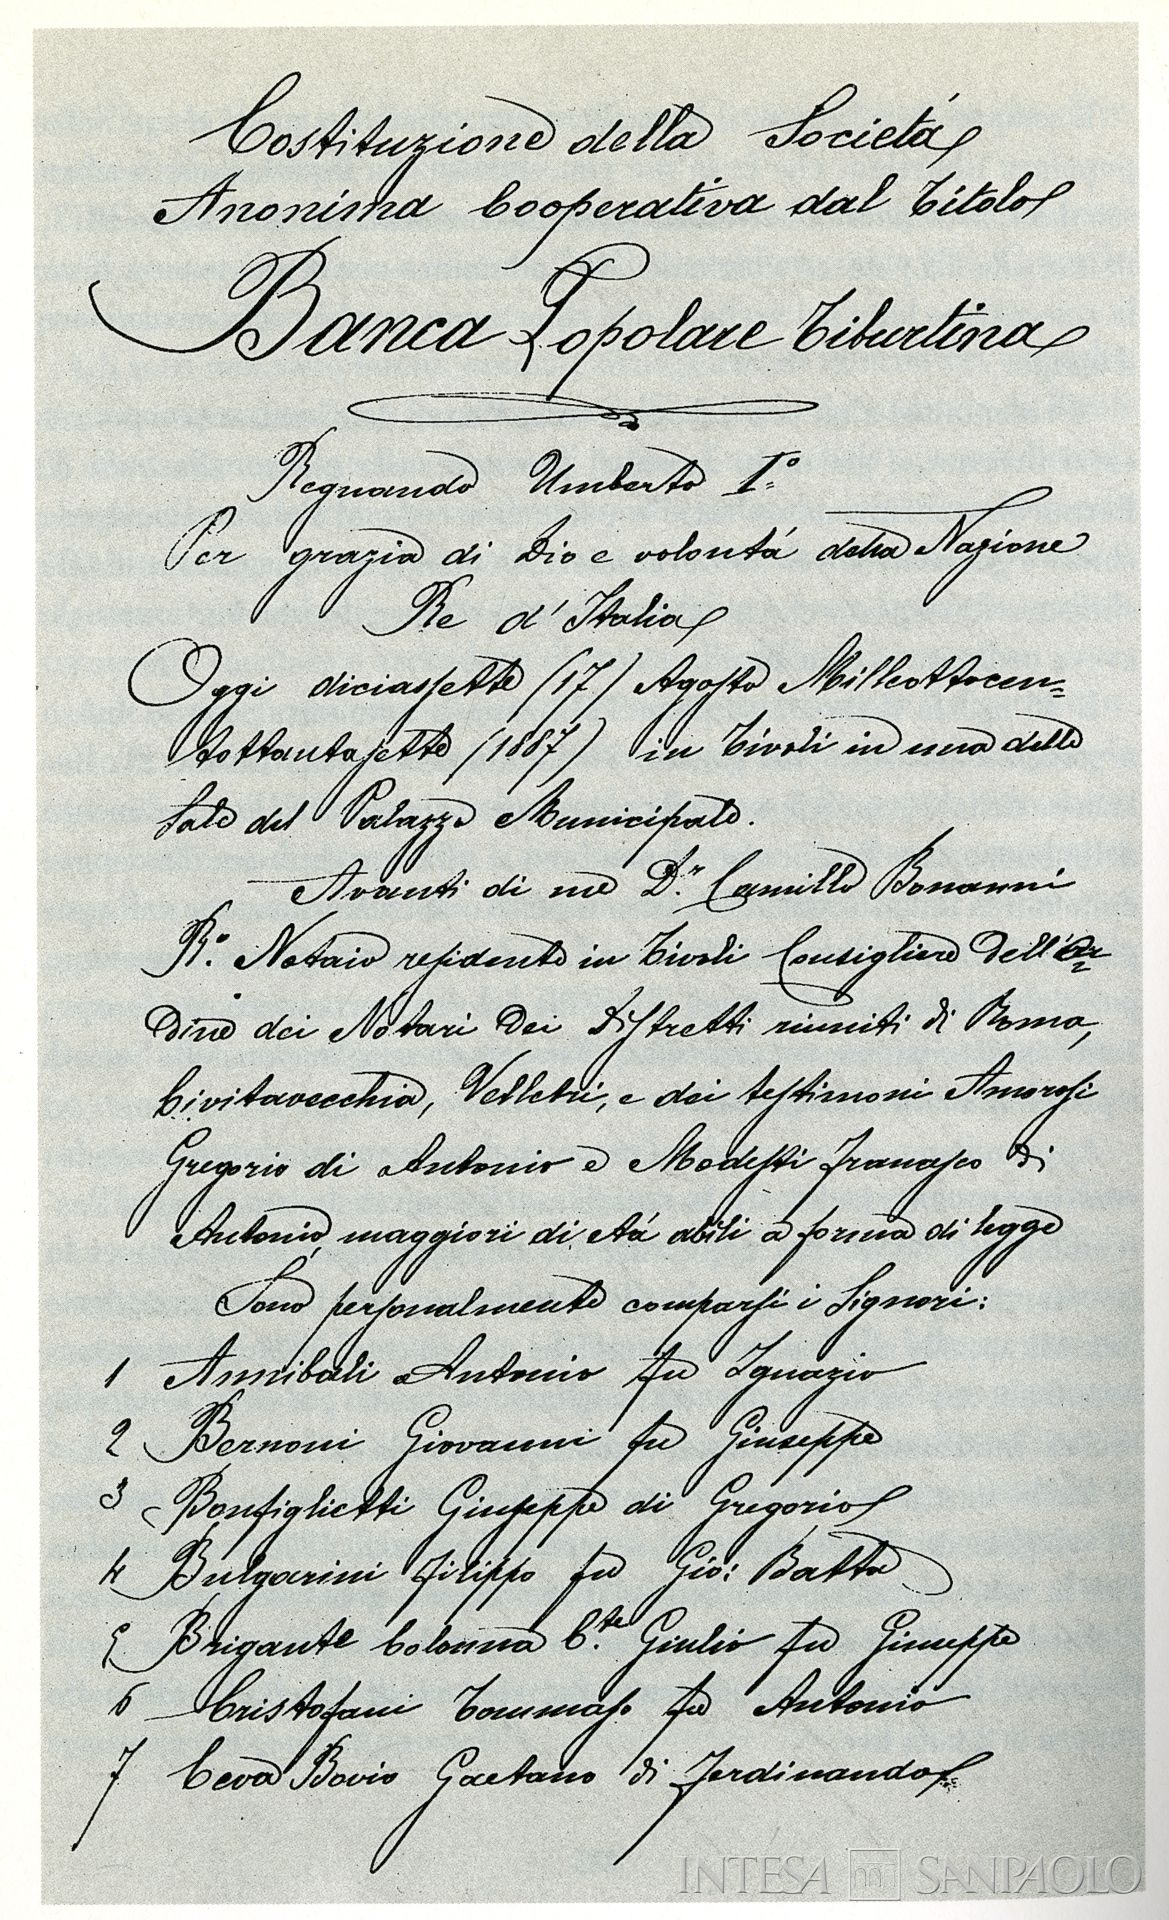 Costituzione della Società
Anonima Cooperativa dal Titolo
Banca Popolare Tiburtina
Regnando Umberto I°
Per grazia di Dio e volontà della Nazione
Re d'Italia
Oggi diciassette (17) Agosto Milleottocen=
tottantasette (1887) in Tivoli in una delle
Sale del Palazzo Municipale.
Avanti di me D.r Camillo Bonanni
R.° Notaio residente in Tivoli Consigliere Dell'Or=
dine dei Notari Dei Distretti riuniti di Roma,
Civitavecchia, Velletri, e dei testimoni Amorosi
Gregorio di Antonio e Modesti Francesco di
Antonio, maggiori di età abili a forma di legge
Sono personalmente comparsi i Signori:
1 Annibali Antonio fu Ignazio
2 Bernoni Giovanni fu Giuseppe
3 Bonfiglietti Giuseppe di Gregorio
4 Bulgarini Filippo fu Gio: Batta
5 Brigante Colonna C.te Giulio fu Giuseppe
6 Cristofani Tommaso fu Antonio
7 Ceva Bovio Gaetano di Ferdinando
INTESA SANPAOLO